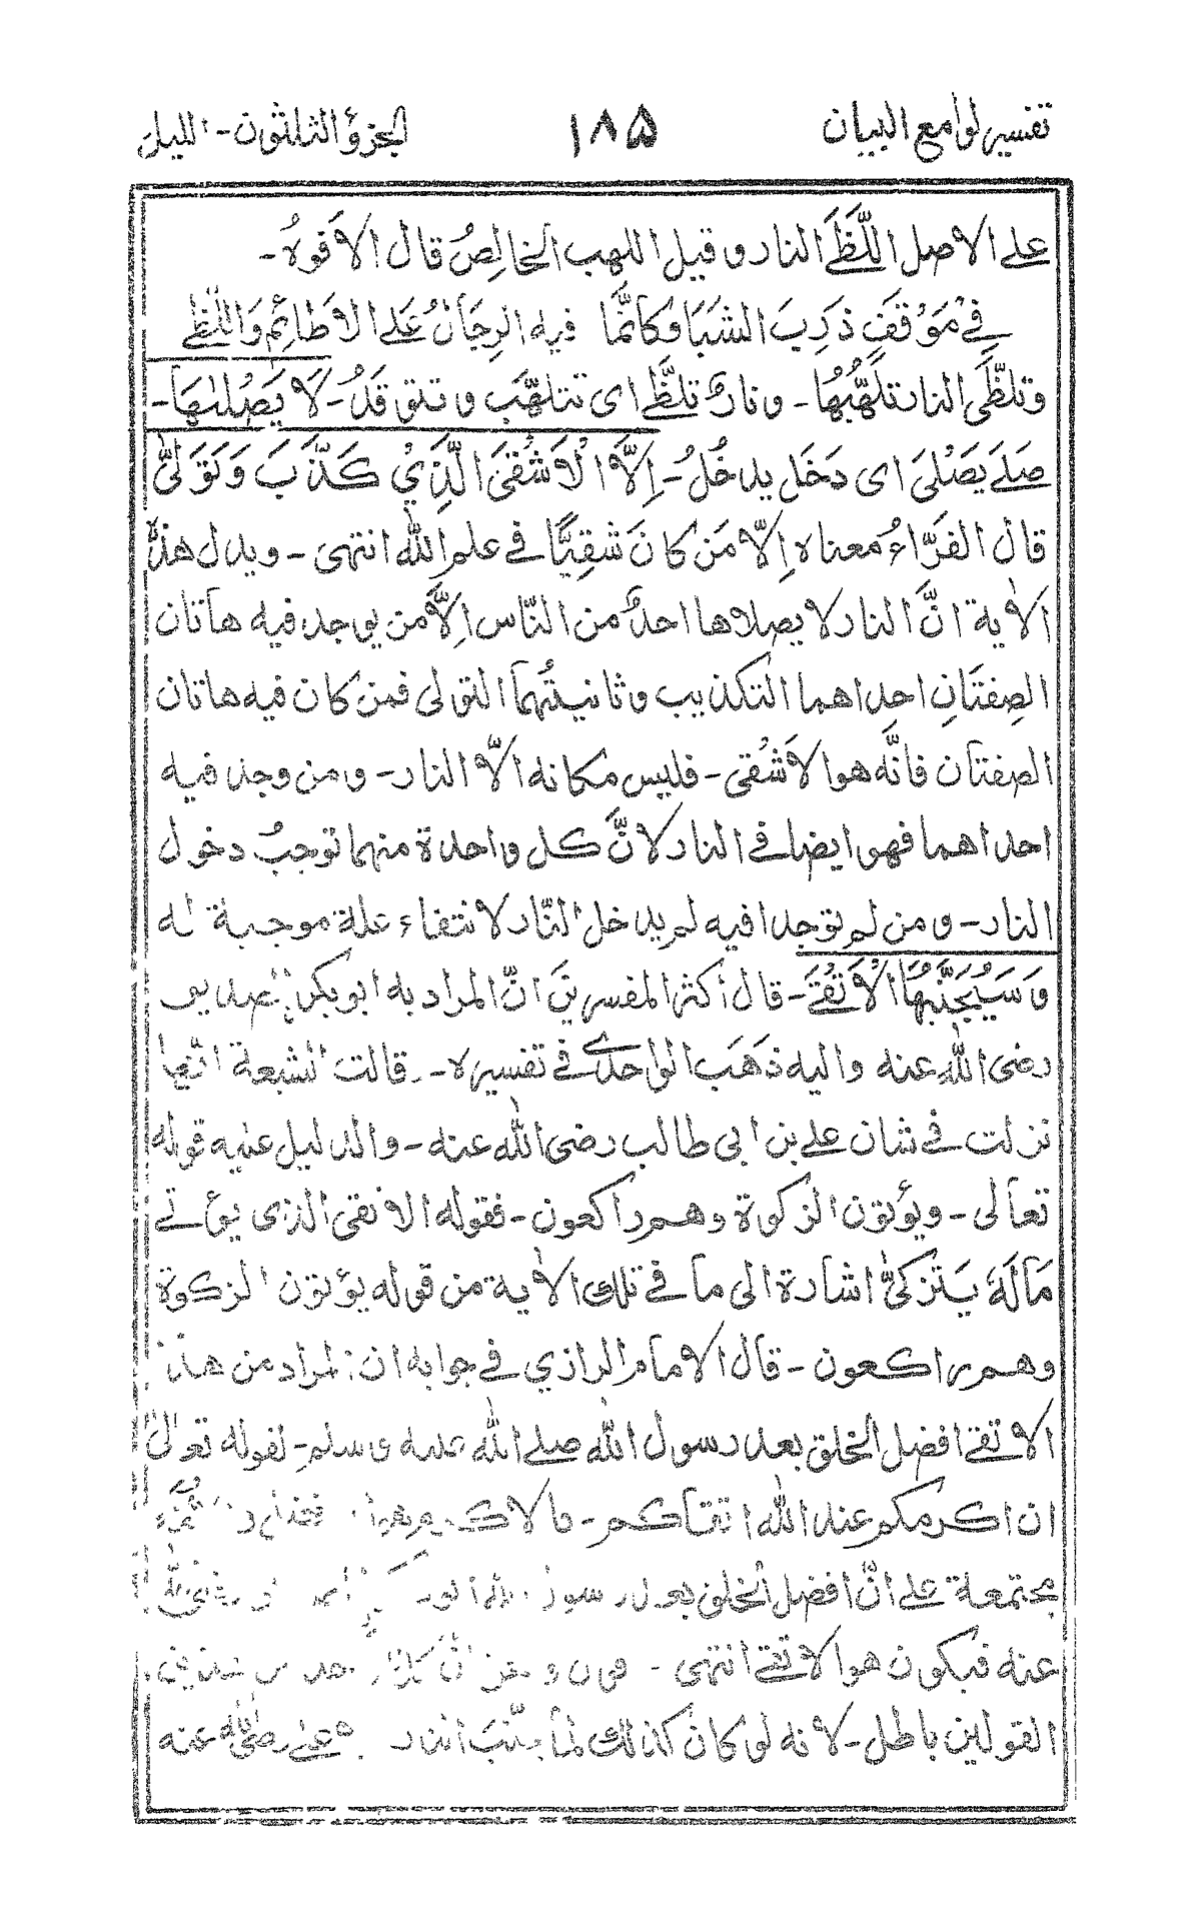 تفسير لوامع البيان ١٨٥ الجزؤ الثلثون - الليل
على الاصل اللَّظَى النار و قيل اللهب الخالِصُ قال الافوهُ-
فِي مَوْقَفٍ ذَرِبَ الشَبَا وَكَأَنَّمَا فيه الرِجَالُ عَلى الاَطائِمِ وَاللَّظٰى
وتلظِّى النار تلَهُّبُهَا - ونارٌ تلَظَّى اى تتلهّب و تتوقدُ- لَا يَصْلٰهَا-
صَلىَ يَصْلىَ اى دَخَل يدخُلُ- اِلَّا الْاَشْقَى الَّذِيْ كَذَّبَ وَتَوَلّٰى
قال الفَرَّاءُ معناه اِلَّا مَن كانَ شقِيًّا فى علم الله انتهى - ويدل هذه
الاٰية انَّ النار لا يصلاها احدٌ من النّاس اِلَّا من يوجد فيه هاتان
الصِفتَانِ احداهما التكذيب و ثانيتُهما التولى فمن كان فيه هاتان
الصفتان فانَّه هوالاَشْقى - فليس مكانه الّا النار - ومن وجد فيه
احداهما فهو ايضا فى النار لانَّ كل واحدة منهما توجبُ دخول
النار - ومن لم توجدا فيه لم يدخل النّار لانتفاء علة موجبة له
وَسَيُجَنَّبُهَا الْاَتْقَى - قال أكثر المفسرينَ انّ المراد به ابوبكر
رضى الله عنه واليه ذهَبَ الواحدى فى تفسيره - قالت الشيعة انّها
نزلت فى شان على بن ابى طالب رضى الله عنه - والدليل عليه قوله
تعالى - ويؤتون الزكوة وهم راكعون - فقوله الاتقى الذى يؤتى
مَالَهٗ يَتَزَكىّٰ اشارة الى ما فى تلك الاٰية من قوله يؤتون الزكوة
وهم راكعون - قال الامام الرازي فى جوابه ان المراد من هذا
الاتقى افضل الخلق بعد رسول الله صلى الله عليه وسلم - لقوله تعالىٰ
ان اكرمكم عند الله اتقاكم - والاكرم هو
مجتمعة على انّ افضل الخلق بعد رسول الله رضى الله
عنه فيكون هوالاتقى انتهى - من هذين
القولين باطل - لانه لو كان كذلك لمَا جنّبَ النار على رضى الله عنه